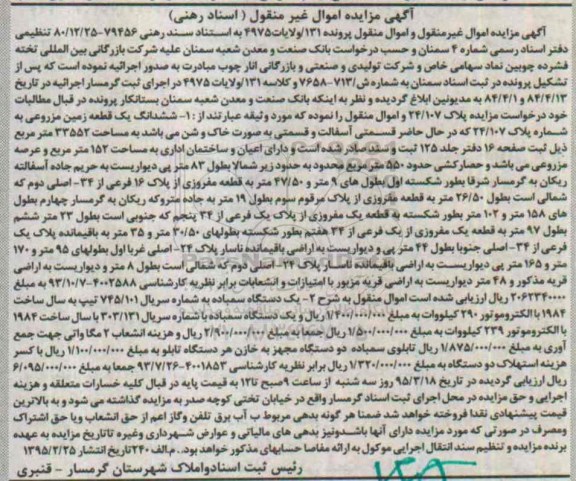 آگهی مزایده اموال غیر منقول ( اسناد رهنی )
آگهی مزایده اموال غیر منقول و اموال منقول پرونده ۱۳۱/ولایات۴۹۷۵ به استناد سند رهنی ۷۹۴۵۶-۸۰/۱۲/۲۵ تنظیمی
دفتر اسناد رسمی شماره ۴ سمنان و حسب درخواست بانک صنعت و معدن شعبه سمنان علیه شرکت بازرگانی بین المللی تخته
فشرده چوبین نماد سهامی خاص و شرکت تولیدی و صنعتی و بازرگانی انار چوب مبادرت به صدور اجرائیه نموده است که پس از
تشکیل پرونده در ثبت اسناد سمنان به شماره ش/۷۱۳-۷۶۵۸ و کلاسه ۱۳۱/ولایات ۴۹۷۵ در اجرای ثبت گرمسار اجرائیه در تاریخ
۸۴/۴/۱۳ و ۸۴/۴/۱ به مدیونین ابلاغ گردیده و نظر به اینکه بانک صنعت و معدن شعبه سمنان بستانکار پرونده در قبال مطالبات
خود درخواست مزایده پلاک ۲۴/۱۰۷ و اموال منقول را نموده که مورد وثیقه عبارتند از : ۱- ششدانگ یک قطعه زمین مزروعی به
شماره پلاک ۲۴/۱۰۷ که در حال حاضر قسمتی آسفالت و قسمتی به صورت خاک و شن می باشد به مساحت ۳۳۵۵۲ متر مربع
ذیل ثبت صفحه ۱۶ دفتر جلد ۱۲۵ ثبت و سند صادر شده است و دارای اعیان و ساختمان اداری به مساحت ۱۵۲ متر مربع و عرصه
مزروعی می باشد و حصارکشی حدود ۵۵۰ متر مربع محدود به حدود زیر شمالا بطول ۸۳ متر پی دیواریست به حریم جاده آسفالته
ریکان به گرمسار شرقا بطور شکسته اول بطول های ۹ متر و ۴۷/۵۰ متر به قطعه مفروزی از پلاک ۱۶ فرعی از ۳۴- اصلی دوم که
شمالی است بطول ۲۶/۵۰ متر به قطعه مفروزی از پلاک مرقوم سوم بطول ۱۹ متر به جاده متروکه ریکان به گرمسار چهارم بطول
های ۱۵۸ متر و ۱۰۲ متر بطور شکسته به قطعه یک مفروزی از پلاک یک فرعی از ۳۴ پنجم که جنوبی است بطول ۲۳ متر ششم
بطول ۹۷ متر به قطعه یک مفروزی از یک فرعی از ۳۴ هفتم بطور شکسته بطولهای ۳۰/۵۰ متر و ۳۵ متر به باقیمانده پلاک یک
فرعی از ۳۴- اصلی جنوبا بطول ۴۴ متر پی و دیواریست به اراضی باقیمانده ناسار پلاک ۲۴- اصلی غربا اول بطولهای ۹۵ متر و ۱۷۰
متر و ۱۶۵ متر پی دیواریست به اراضی باقیمانده ناسار پلاک ۲۴- اصلی دوم که شمالی است بطول ۸ متر و دیواریست به اراضی
قریه مذکور و ۴۸ متر دیواریست به اراضی قریه مزبور با امتیازات و انشعابات برابر نظریه کارشناسی ۴۰۰۲۵۸۸-۹۳/۱۰/۷ به مبلغ
۲۰۶۲۳۴۰۰۰۰ ریال ارزیابی شده است اموال منقول به شرح ۲- یک دستگاه سمباده به شماره سریال ۷۴۵/۱۰۱ تیپ به سال ساخت
۱۹۸۴ با الکتروموتور ۲۹۰ کیلووات به مبلغ ۱/۴۰۰/۰۰۰/۰۰۰ ریال و یک دستگاه سمباده با شماره سریال ۳۰۳/۱۳۱ با سال ساخت ۱۹۸۴
با الکتروموتور ۲۳۹ کیلووات به مبلغ ۱/۵۰۰/۰۰۰/۰۰۰ ریال جمعا به مبلغ ۲/۹۰۰/۰۰۰/۰۰۰ ریال و هزینه انشعاب ۲ مگا واتی جهت جمع
آوری به مبلغ ۱/۸۷۵/۰۰۰/۰۰۰ ریال تابلوی سمباده دو دستگاه مجهز به خازن هر دستگاه تابلو به مبلغ ۱/۱۰۰/۰۰۰/۰۰۰ ریال با کسر
هزینه استهلاک دو دستگاه به مبلغ ۱/۳۲۰/۰۰۰/۰۰۰ ریال برابر نظریه کارشناسی ۴۰۰۱۸۵۳-۹۳/۷/۲۶ جمعا به مبلغ ۶/۰۹۵/۰۰۰/۰۰۰
ریال ارزیابی گردیده در تاریخ ۹۵/۳/۱۸ روز سه شنبه از ساعت ۹صبح تا۱۲ به قیمت پایه در قبال کلیه خسارات متعلقه و هزینه
اجرایی و حق مزایده در محل اجرای ثبت اسناد گرمسار واقع در خیابان تختی کوچه صدر به مزایده گذاشته می شود و به بالاترین
قیمت پیشنهادی نقدا فروخته خواهد شد ضمنا هر گونه بدهی مربوط ب آب برق تلفن وگاز اعم از حق انشعاب ویا حق اشتراک
ومصرف در صورتی که مورد مزایده دارای آنها باشدونیز بدهی های مالیاتی و عوارض شهرداری وغیره تاتاریخ مزایده به عهده
برنده مزایده و تنظیم سند انتقال اجرایی موکول به ارائه مفاصا حسابهای مذکور خواهد بود. م.الف ۲۴۰ تاریخ انتشار ۱۳۹۵/۲/۲۵
رئیس ثبت اسنادواملاک شهرستان گرمسار - قنبری